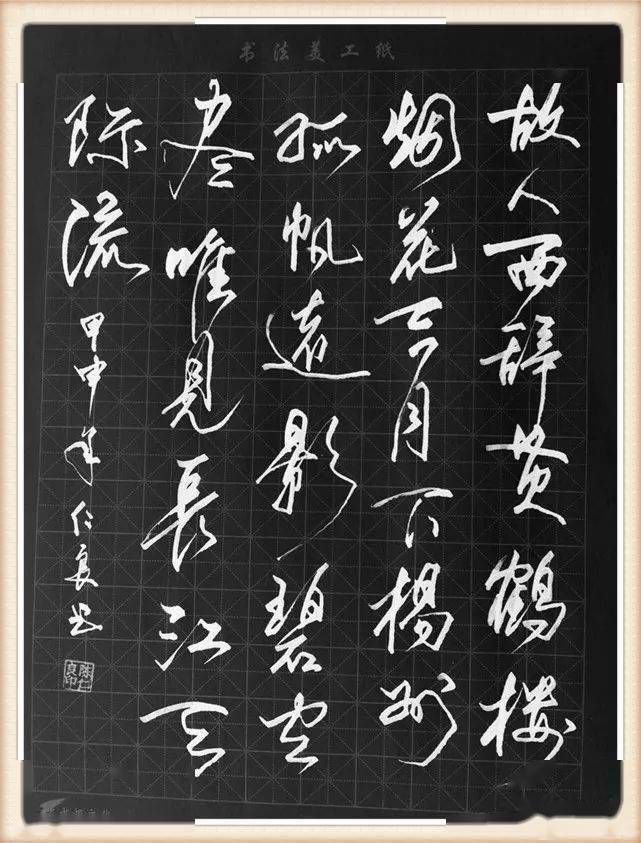 书法美工纸
故人西辞黄鹤楼
烟花三月下楊州
孤帆遠影碧空
尽唯見長江天
际流
甲申年仁良书
陈仁良印